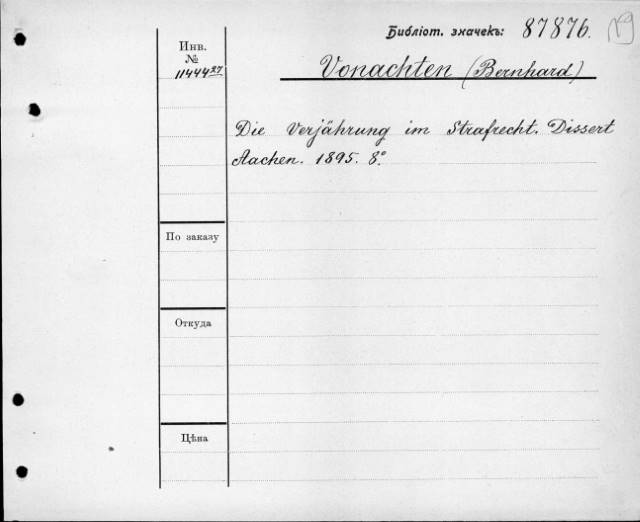 Библіот. значекъ: 87876.
Инв.
№
11444²⁷
Vonachten (Bernhard)
Die Verjährung im Strafrecht. Dissert
Aachen. 1895. 8°.
По заказу
Откуда
Цѣна